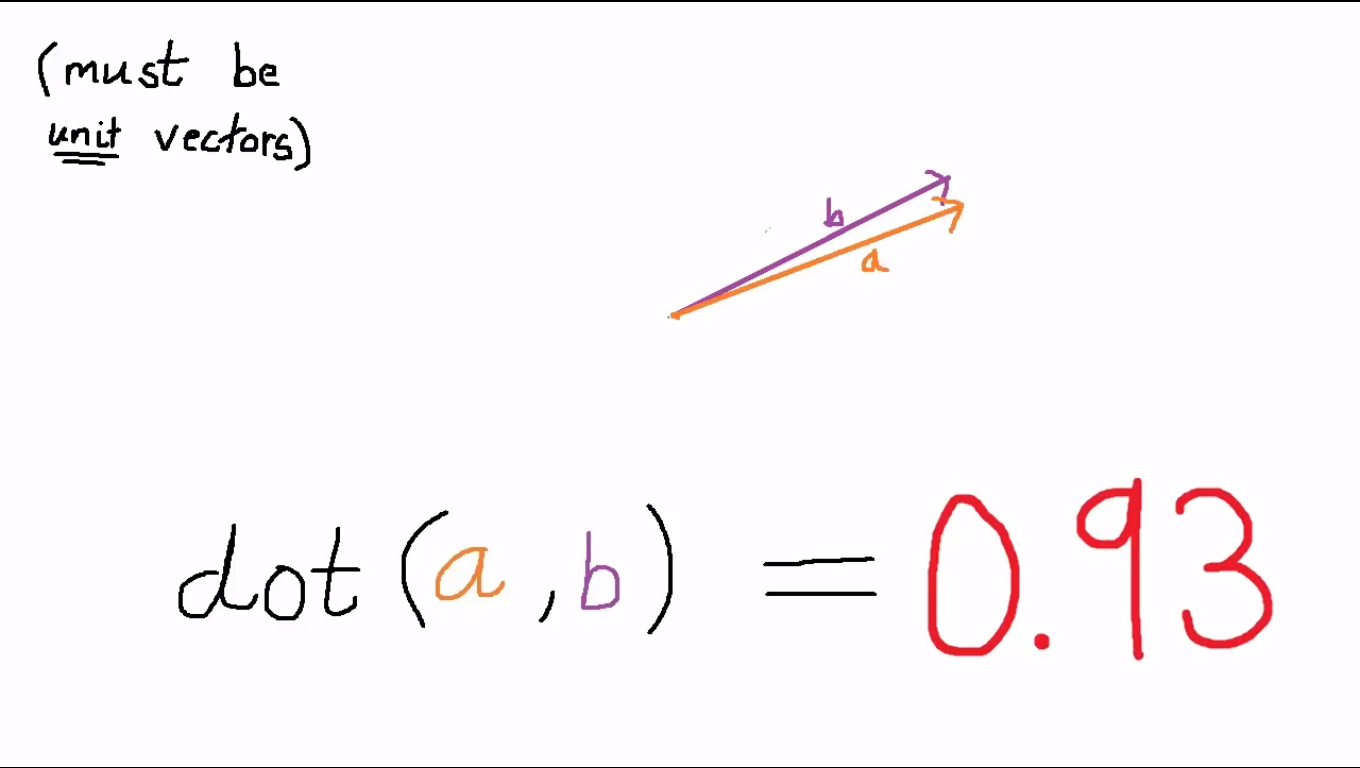 (must be
unit vectors)
b
a
dot(a,b) = 0.93